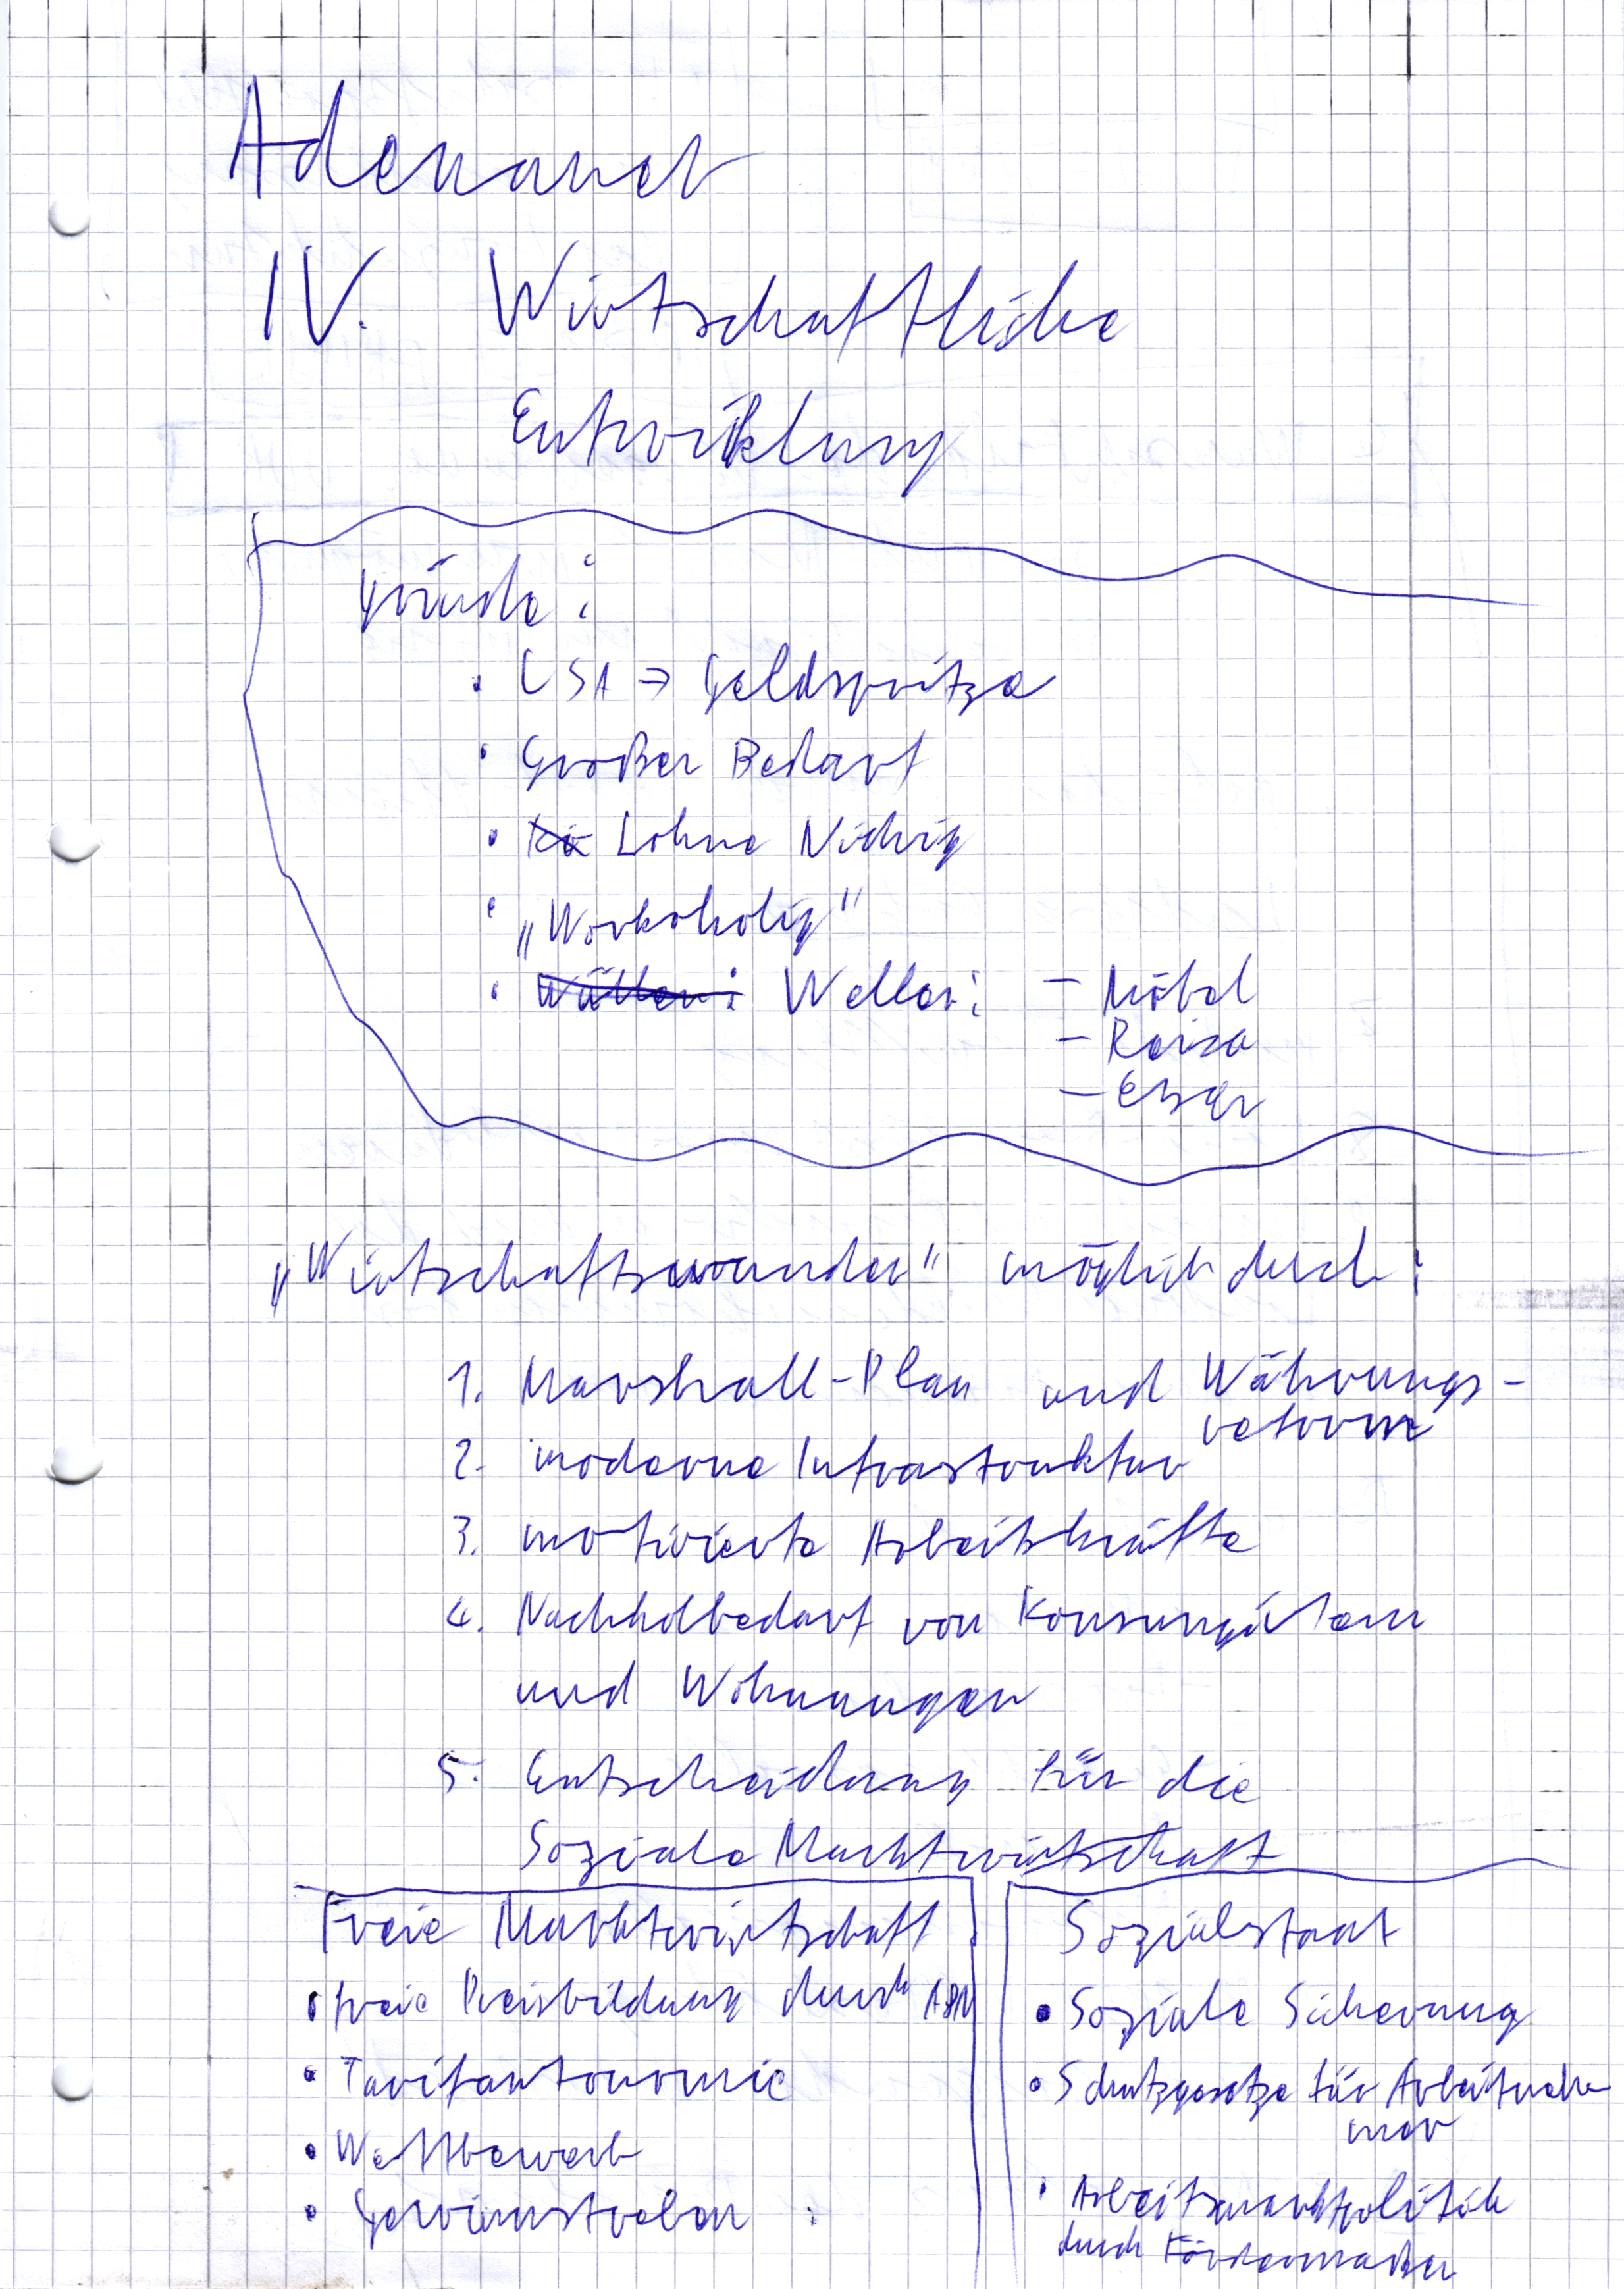 Adenauer
IV. Wirtschaftliche
Entwicklung
Gründe:
• USA → Geldspritze
• Großer Bedarf
• Löhne Nidrig
• „Workoholig"
• Wellen: – Möbel
– Reise
– Essen
„Wirtschaftswunder" möglich durch:
1. Marshall-Plan und Währungs-
reform
2. moderne Infrastruktur
3. motivierte Arbeitskräfte
4. Nachholbedarf von Konsumgütern
und Wohnungen
5. Entscheidung für die
Soziale Marktwirtschaft
Freie Marktwirtschaft
• freie Preisbildung durch A&N
• Tarifautonomie
• Wettbewerb
• Gewinnstreben
Sozialstaat
• Soziale Sicherung
• Schutzgesetze für Arbeitneh
mer
• Arbeitsmarktpolitik
durch Fördermaßen